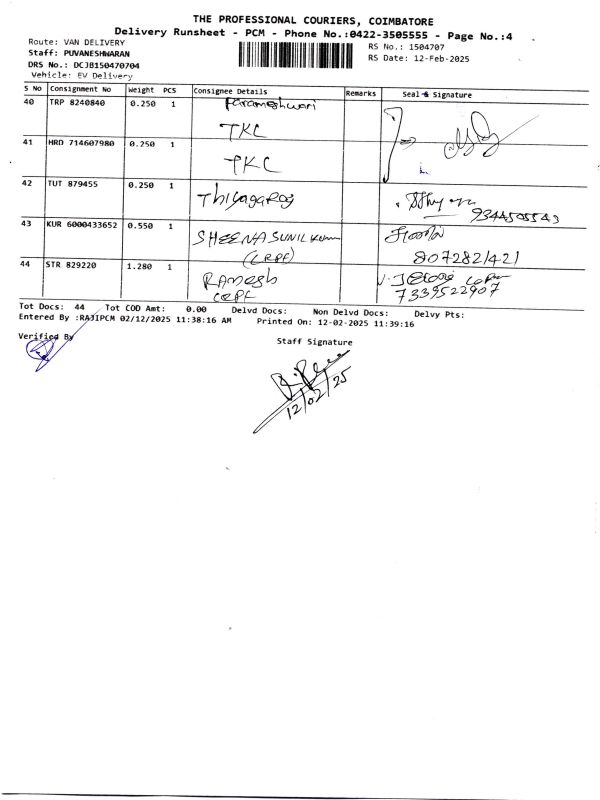 THE PROFESSIONAL COURIERS, COIMBATORE
Delivery Runsheet - PCM - Phone No.:0422-3505555 - Page No.:4
Route: VAN DELIVERY
Staff: PUVANESHWARAN
DRS No.: DCJB150470704
Vehicle: EV Delivery
RS No.: 1504707
RS Date: 12-Feb-2025
S No Consignment No Weight PCS Consignee Details Remarks Seal & Signature
40 TRP 8240840 0.250 1 Parameshwari
TKC
41 HRD 714607980 0.250 1
TKC
42 TUT 879455 0.250 1 Thiyagaraj
9344505543
43 KUR 6000433652 0.550 1 SHEENA SUNIL Kum
(CRPF) 8072821421
44 STR 829220 1.280 1 Ramesh
CRPF 7339522907
Tot Docs: 44 Tot COD Amt: 0.00 Delvd Docs: Non Delvd Docs: Delvy Pts:
Entered By :RAJIPCM 02/12/2025 11:38:16 AM Printed On: 12-02-2025 11:39:16
Verified By
Staff Signature
12/02/25